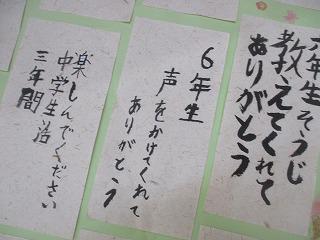 六年生そうじ
教えてくれて
ありがとう
6年生
声をかけてくれて
ありがとう
楽しんでください
中学生活
三年間